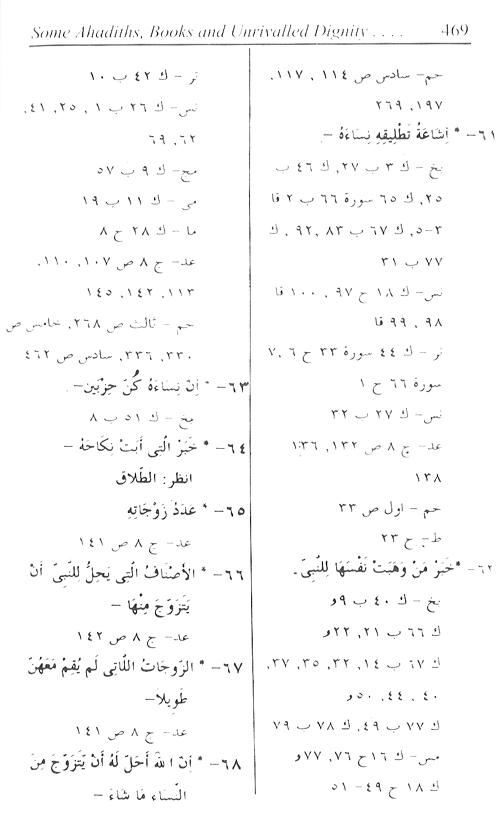 Some Ahadiths, Books and Unrivalled Dignity . . . . 469
حم- سادس ص ١١٤ ، ١١٧,
١٩٧، ٢٦٩
٦١- * اِشَاعَةُ تَطْلِيقِهِ نِسَاءَهُ -
بخ - ك ٣ ب ٢٧, ك ٤٦ ب
٢٥, ك ٦٥ سورة ٦٦ ب ٢ قا
٣-٥, ك ٦٧ ب ٨٣ ,٩٢ , ك
٧٧ ب ٣١
نس- ك ١٨ ح ٩٧ , ١٠٠ قا
٩٨ , ٩٩ قا
تر - ك ٤٤ سورة ٣٣ ح ٦ ,٧
سورة ٦٦ ح ١
نس- ك ٢٧ ب ٣٢
عد- ج ٨ ص ١٣٢, ١٣٦
١٣٨
حم - اول ص ٣٣
ط- ح ٢٣
٦٢- *خَبَرُ مَنْ وَهَبَتْ نَفْسَهَا لِلنَّبِيِّ.
بخ - ك ٤٠ ب ٩و
ك ٦٦ ب ٢١, ٢٢و
ك ٦٧ ب ١٤, ٣٢, ٣٥, ٣٧,
٤٠ , ٤٤, ٥٠و
ك ٧٧ ب ٤٩, ك ٧٨ ب ٧٩
مس- ك ١٦ ح ٧٦, ٧٧و
ك ١٨ ح ٤٩- ٥١
تر - ك ٤٢ ب ١٠
نس- ك ٢٦ ب ١ , ٢٥, ٤١,
٦٢, ٦٩
مج- ك ٩ ب ٥٧
مى - ك ١١ ب ١٩
ما - ك ٢٨ ح ٨
عد- ج ٨ ص ١٠٧, ١١٠,
١١٣, ١٤٢, ١٤٥
حم - ثالث ص ٢٦٨, خامس ص
٣٣٠, ٣٣٦, سادس ص ٤٦٢
٦٣- * اِنَّ نِسَاءَهُ كُنَّ حِزْبَيْنِ-
بخ - ك ٥١ ب ٨
٦٤- * خَبَرُ الَّتِى أَبَتْ نِكَاحَهُ -
انظر: الطّلاق
٦٥- * عَدَدُ زَوْجَاتِهِ
عد- ج ٨ ص ١٤١
٦٦- * الأَصْنَافُ الَّتِى يَحِلُّ لِلنَّبِيِّ أَنْ
يَتَزَوَّجَ مِنْهَا -
عد- ج ٨ ص ١٤٢
٦٧- * الزَّوجَاتُ اللَّاتِى لَمْ يُقِمْ مَعَهُنَّ
طَوِيلاً-
عد- ج ٨ ص ١٤١
٦٨- * اِنَّ اللهَ أَحَلَّ لَهُ أَنْ يَتَزَوَّجَ مِنَ
النِّسَاءِ مَا شَاءَ -